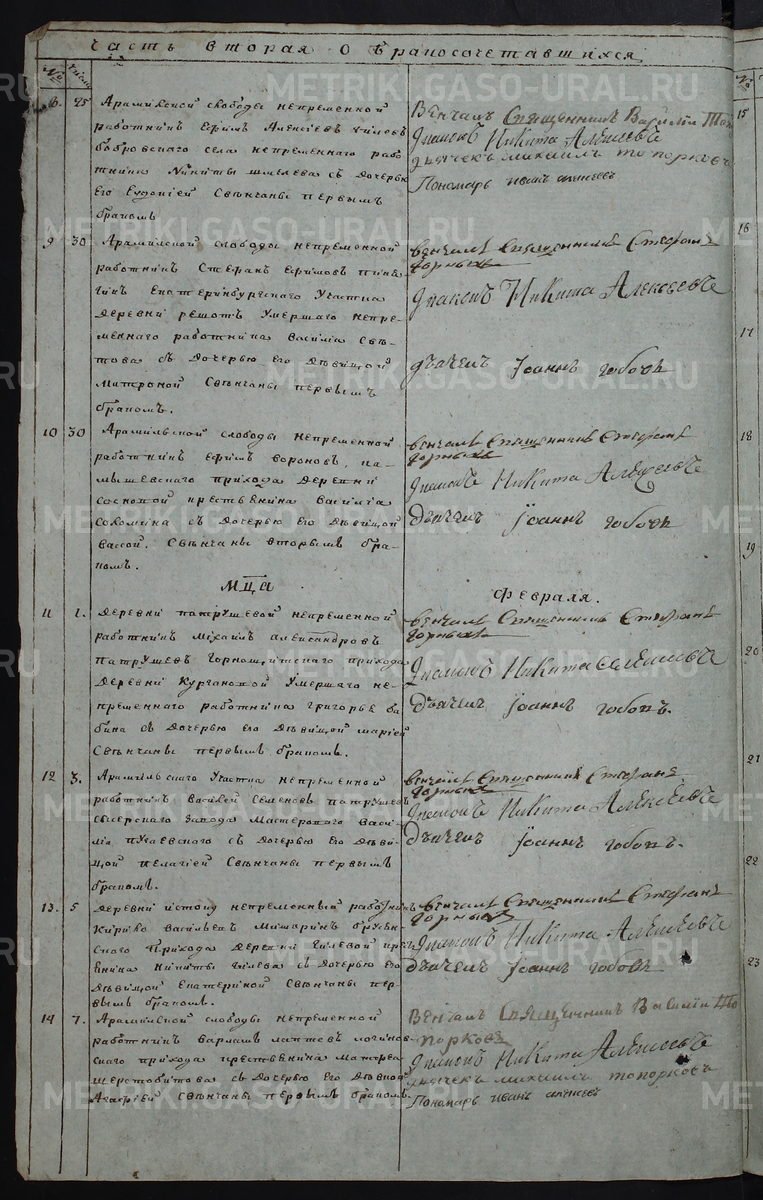 часть вторая о бракосочетавшихся
№ число
25 Арамильской слободы непременной
работникъ Ефимъ Алексѣевъ
бобровскаго села непременнаго рабо
тника Никиты шмелева съ дочерью
его Евдокіей Свѣнчаны первымъ
бракомъ
Венчалъ Священникъ Василій
Діаконъ Никита Алексѣевъ
дьячекъ михаилъ топорковъ
Пономарь иванъ алексеевъ
9 30 Арамилской слободы непременной
работникъ Стефанъ Ефимовъ
Екатеринбургскаго Участка
деревни решотъ Умершаго непре-
меннаго работника Василіа
съ дочерью его дѣвицой
Матроной Свѣнчаны первымъ
бракомъ.
венчалъ Священникъ Стефанъ
Горныхъ
Діаконъ Никита Алексеевъ
дьячекъ Іоаннъ
10 30 Арамильской слободы непременной
работникъ Ефимъ вороновъ, ка-
мышевскаго прихода деревни
сосновой крестьянина Василіа
Соломина съ дочерью его дѣвицой
вассой. Свѣнчаны вторымъ бра-
комъ.
венчалъ Священникъ Стефанъ
Горныхъ
Діаконъ Никита Алексѣевъ
дьячекъ Іоаннъ
мца Февраля.
11 1. деревни патрушевой непременной
работникъ Михаилъ александровъ
патрушевъ Горнощитскаго прихода
деревни Кургановой Умершаго не-
пременнаго работника григорье ба
бина съ дочерью его дѣвицой маріей
Свѣнчаны первымъ бракомъ.
венчалъ Священникъ Стефанъ
Горныхъ
Діаконъ Никита Алексѣевъ
дьячекъ Іоаннъ
12 3. Арамильскаго Участка непременной
работникъ Василей Семеновъ патрушевъ
сысерскаго завода Мастероваго Васи-
лія пусаевскаго съ дочерью его дѣви-
цой пелагіей Свѣнчаны первымъ
бракомъ.
венчалъ Священникъ Стефанъ
Горныхъ
Діаконъ Никита Алексѣевъ
дьячекъ Іоаннъ
13. 5 деревни истоку непременный работникъ
Кирило васильевъ Мишаринъ брусян-
скаго Прихода деревни гилевой крест
янина Никиты гилева съ дочерью его
дѣвицой Екатериной Свѣнчаны пер-
вымъ бракомъ.
венчалъ Священникъ Стефанъ
Горныхъ
Діаконъ Никита Алексѣевъ
дьячекъ Іоаннъ
14 7. Арамилской слободы непременной
работникъ варламъ лаптевъ логинов-
скаго прихода крестьянина матвеа
шерстобитова съ дочерью его дѣвкой
Агафіей свѣнчаны первымъ бракомъ
Венчалъ Священникъ Василій То
порковъ
Діаконъ Никита Алексѣевъ
дьячекъ михаилъ топорковъ
Пономарь иванъ алексеевъ
№
15
16
17
18
19
20
21
22
23
METRIKI.GASO-URAL.RU